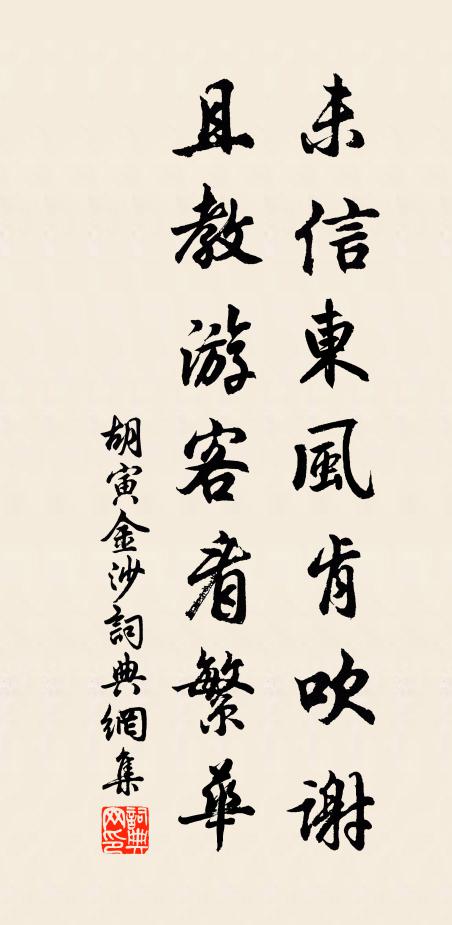 未信東風肯吹謝
且教游客看繁華
胡寅金沙詞典網集
詞典
网印